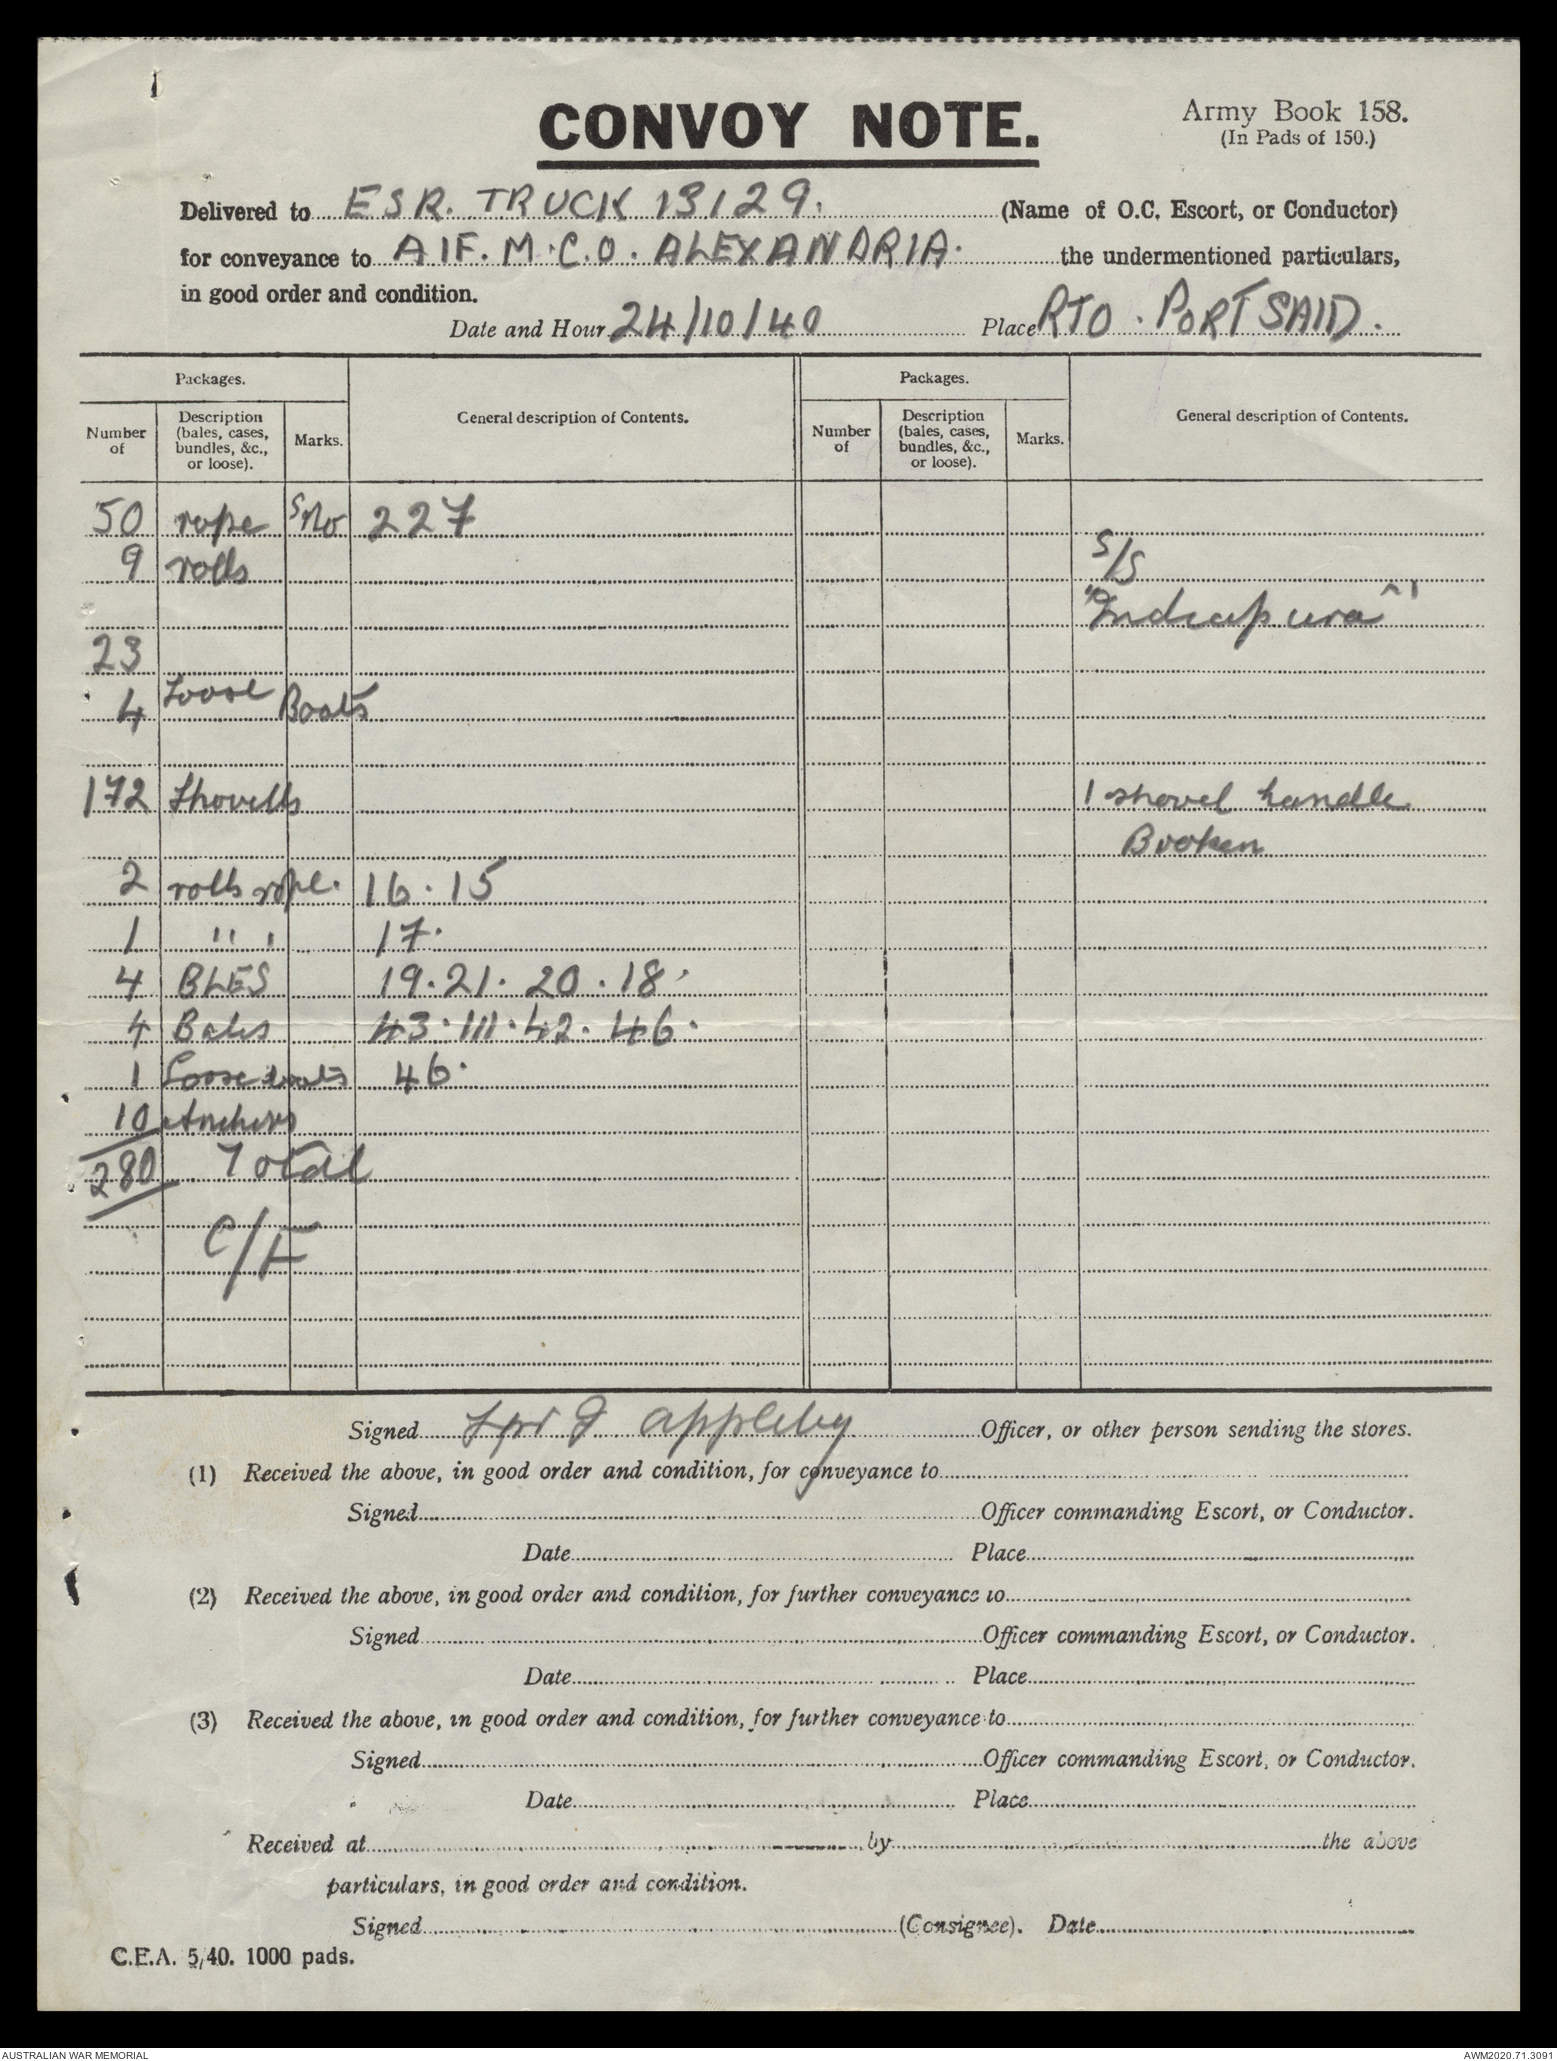 CONVOY NOTE.
Army Book 158.
(In Pads of 150.)
Delivered to ESR. TRUCK 13129. (Name of O.C. Escort, or Conductor)
for conveyance to AIF. M.C.O. ALEXANDRIA. the undermentioned particulars,
in good order and condition.
Date and Hour 24/10/40 Place RTO. PORT SAID.
Packages. Packages.
Number of Description (bales, cases, bundles, &c., or loose). Marks. General description of Contents. Number of Description (bales, cases, bundles, &c., or loose). Marks. General description of Contents.
50 rope SNo 227
9 rolls S/S
"Indrapura"
23
4 Loose Boats
172 Shovells 1 shovel handle
Broken
2 rolls rope. 16 . 15
1 " " 17.
4 BLES 19 . 21 . 20 . 18
4 Bales 43 . 111 . 42 . 46.
1 Loose boats 46.
10 Anchors
280 Total
C/F
Signed Spr J Appleby Officer, or other person sending the stores.
(1) Received the above, in good order and condition, for conveyance to
Signed Officer commanding Escort, or Conductor.
Date Place
(2) Received the above, in good order and condition, for further conveyance to
Signed Officer commanding Escort, or Conductor.
Date Place
(3) Received the above, in good order and condition, for further conveyance to
Signed Officer commanding Escort, or Conductor.
Date Place
Received at by the above
particulars, in good order and condition.
Signed (Consignee). Date
C.E.A. 5/40. 1000 pads.
AUSTRALIAN WAR MEMORIAL AWM2020.71.3091